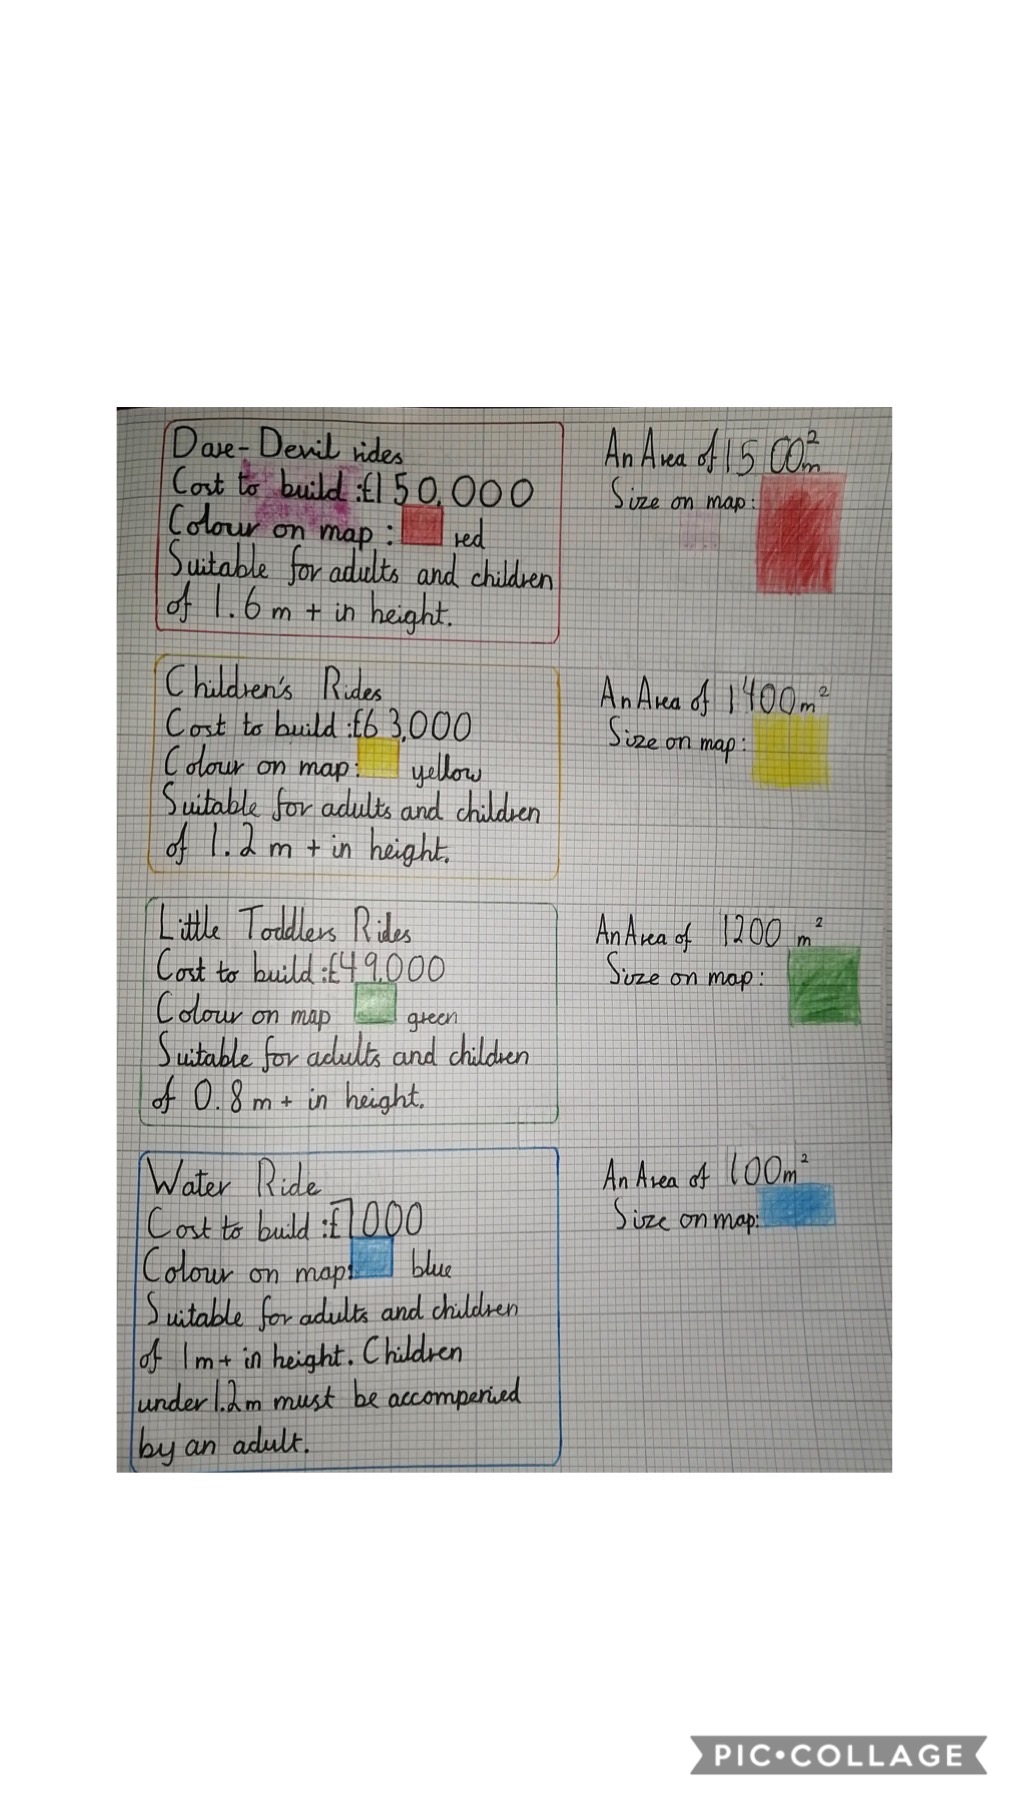 Dare-Devil rides
Cost to build :£150,000
Colour on map : red
Suitable for adults and children
of 1.6 m + in height.
An Area of 1500m²
Size on map:
Children's Rides
Cost to build :£63,000
Colour on map: yellow
Suitable for adults and children
of 1.2 m + in height.
An Area of 1400m²
Size on map:
Little Toddlers Rides
Cost to build :£49,000
Colour on map green
Suitable for adults and children
of 0.8 m + in height.
An Area of 1200 m²
Size on map:
Water Ride
Cost to build :£7000
Colour on map: blue
Suitable for adults and children
of 1m+ in height. Children
under 1.2m must be accompenied
by an adult.
An Area of 100m²
Size on map:
PIC•COLLAGE